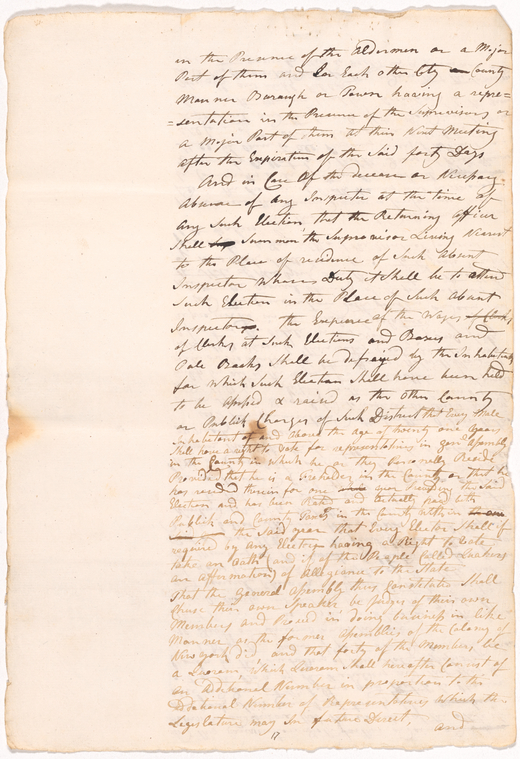 in the Presence of the Aldermen or a Major
Part of them and for Each other City or County
Mannor Borough or Town having a repre=
=sentation in the Presence of the Supervisors or
a Major Part of them at their Next Meeting
after the Expiration of the Said forty Days
And in Case of the decease or Necessary
Absence of any Inspector at the time of
Any Such Election that the Returning officer
Shall Summon the Supervisor Living Nearest
to the Place of residence of Such Absent
Inspector Whose Duty it Shall be to attend
Such Election in the Place of Such Absent
Inspector. the Expence of the Wages of Clerks
of Clerks at Such Elections and Boxes and
Pole Books Shall be defrayed by the Inhabitants
for which Such Election Shall have been held
to be Assessed & raised as the other County
or Publick Charges of Such District that Every Male
Inhabitant of and above the age of twenty one Years
Shall have a right to Vote for representatives in genl Assembly
in the County in which he or they Personally Reside
Provided that he is a freeholder in the County or that he
has resided therein for one Year Preceding the Said
Election and has been Rated and Actually Paid both
Publick and County Taxes in the County within
the Said year that Every Elector Shall if
required by Any Elector having a Right to Vote
take an Oath (and if of the People Called Quakers
an affirmation) of Allegiance to the State
that the General Assembly thus Constituted Shall
Chuse their own Speaker be judges of their own
Members and Proceed in doing business in like
Manner as the former Assemblies of the Colony of
New york did and that forty of the Members be
a Quorum, Which Quorum Shall hereafter Consist of
an Additional Number in proportion to the
Additional Number of Representatives Which the
Legislature may in future Direct
and